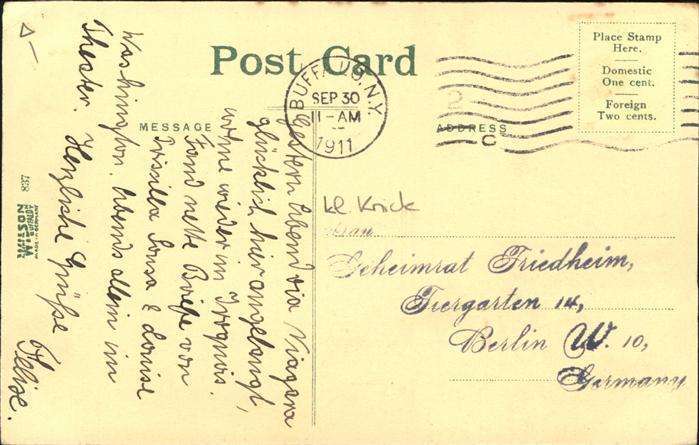 Post Card
BUFFALO, N.Y.
SEP 30
11-AM
1911
C
Place Stamp
Here.
Domestic
One cent.
Foreign
Two cents.
MESSAGE
ADDRESS
Gestern Abend via Niagara
glücklich hier angelangt,
wohne wieder im Iroquois.
Fand nette Briefe von
Priscilla Sousa & Louise
Washington. Abends allein im
Theater. Herzliche Grüße
Felise.
kl. Krick
Frau
Geheimrat Friedheim,
Tiergarten 14,
Berlin W. 10,
Germany
837
MADE IN GERMANY